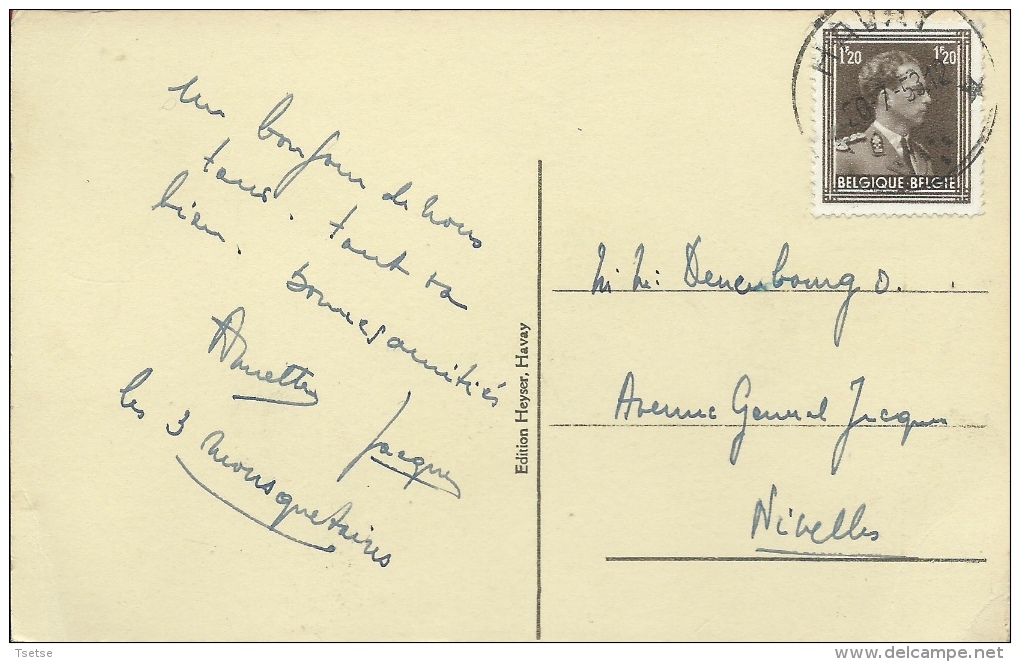 Un bonjour de nous
tous. tout va
bien. Bonnes amitiés
Annette
Jacques
les 3 mousquetaires
Edition Heyser, Havay
HAVAY
1F20 1F20
BELGIQUE-BELGIE
Mr Mr Denenbourg O.
Avenue General Jacques
Nivelles
Tsetse
delcampe.net